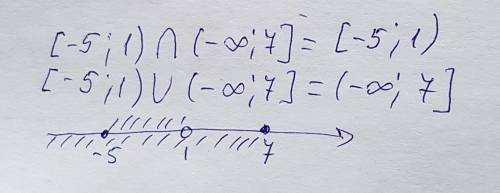 [-5; 1) ∩ (-∞; 7] = [-5; 1)
[-5; 1) ∪ (-∞; 7] = (-∞; 7]
-5 1 7